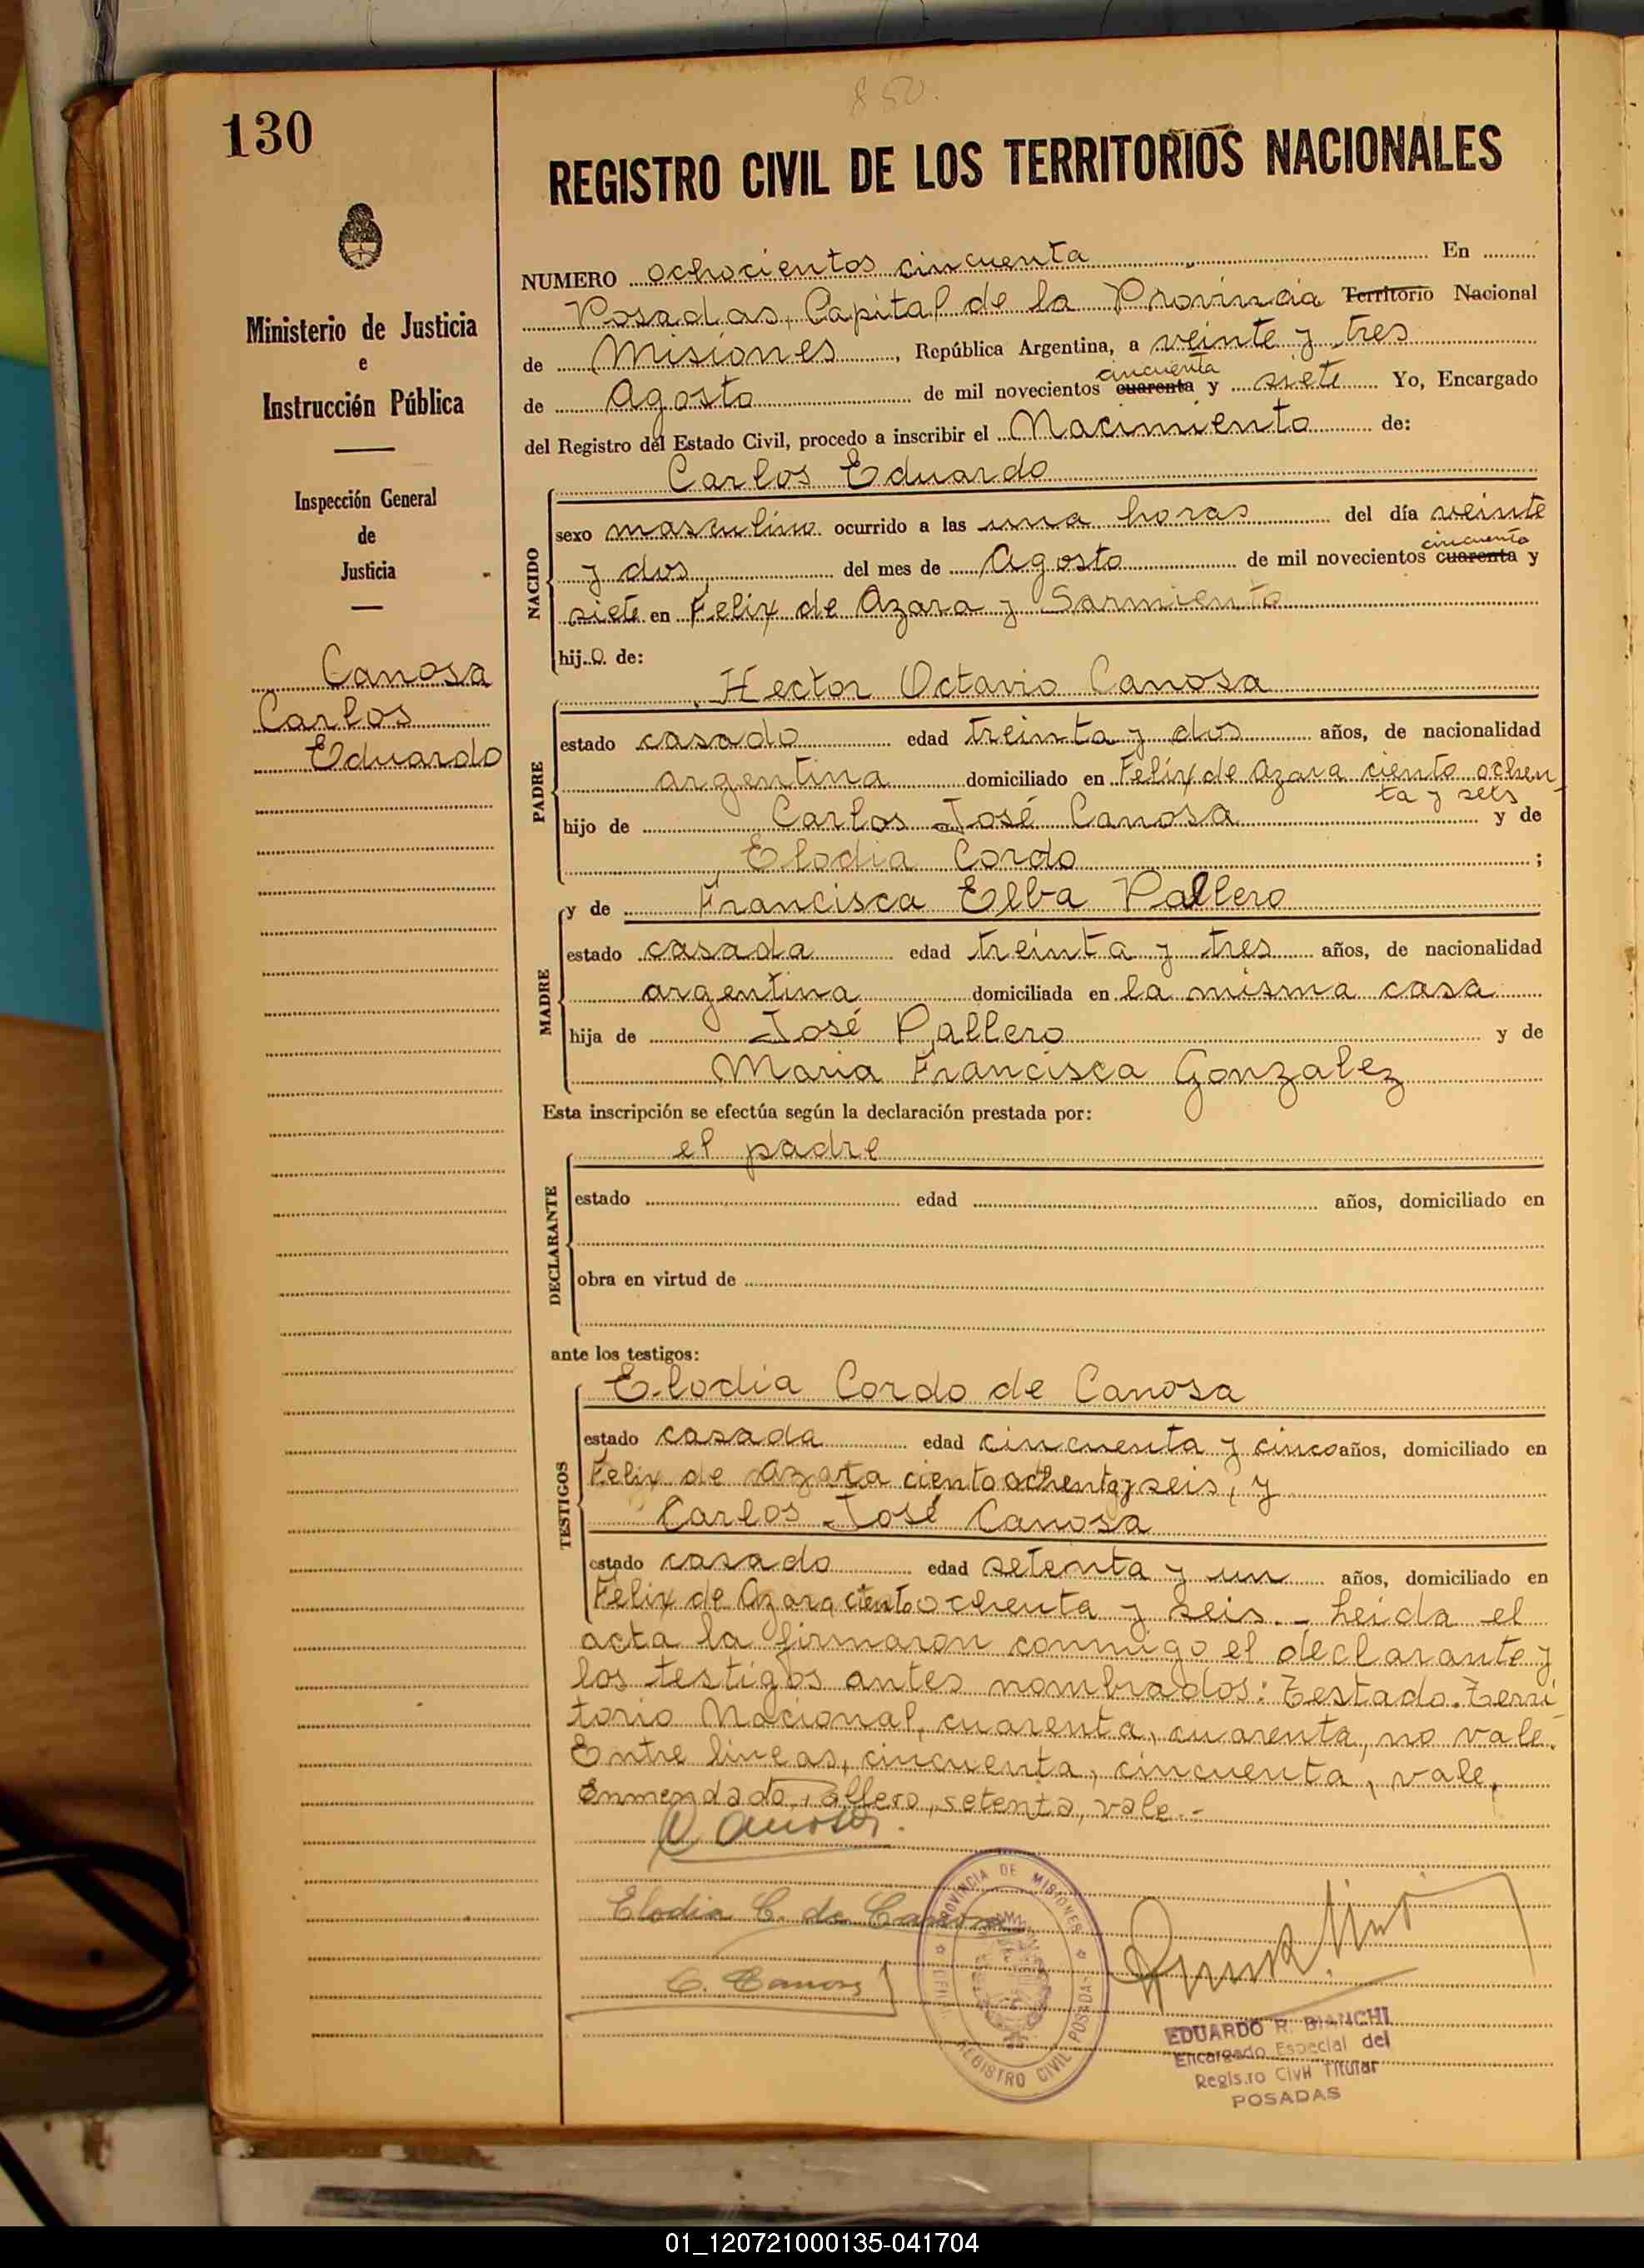 850.
130
REGISTRO CIVIL DE LOS TERRITORIOS NACIONALES
Ministerio de Justicia
e
Instrucción Pública
Inspección General
de
Justicia
Canosa
Carlos
Eduardo
NUMERO ochocientos cincuenta En
Posadas, Capital de la Provincia Territorio Nacional
de Misiones, República Argentina, a veinte y tres
cincuenta
de Agosto de mil novecientos cuarenta y siete Yo, Encargado
del Registro del Estado Civil, procedo a inscribir el Nacimiento de:
Carlos Eduardo
NACIDO
sexo masculino ocurrido a las una horas del día veinte
cincuenta
y dos del mes de Agosto de mil novecientos cuarenta y
siete en Felix de Azara y Sarmiento
hijo de:
Hector Octavio Canosa
PADRE
estado casado edad treinta y dos años, de nacionalidad
argentina domiciliado en Felix de Azara ciento ochen
ta y seis
hijo de Carlos José Canosa y de
Elodia Cordo ;
y de Francisca Elba Pallero
MADRE
estado casada edad treinta y tres años, de nacionalidad
argentina domiciliada en la misma casa
hija de José Pallero y de
Maria Francisca Gonzalez
Esta inscripción se efectúa según la declaración prestada por:
el padre
DECLARANTE
estado edad años, domiciliado en
obra en virtud de
ante los testigos:
Elodia Cordo de Canosa
TESTIGOS
estado casada edad cincuenta y cinco años, domiciliado en
Felix de Azara ciento ochenta y seis, y
Carlos José Canosa
estado casado edad setenta y un años, domiciliado en
Felix de Azara ciento ochenta y seis.- Leida el
acta la firmaron conmigo el declarante y
los testigos antes nombrados: Testado. Terri
torio Nacional, cuarenta, cuarenta, no vale.
Entre lineas, cincuenta, cincuenta, vale.
Enmendado, Pallero, setenta, vale.-
Canosa.
Elodia C. de Canosa
C. Canosa
PROVINCIA DE MISIONES
REGISTRO CIVIL POSADAS
EDUARDO R. BIANCHI
Encargado Especial del
Registro Civil Titular
POSADAS
01_120721000135-041704